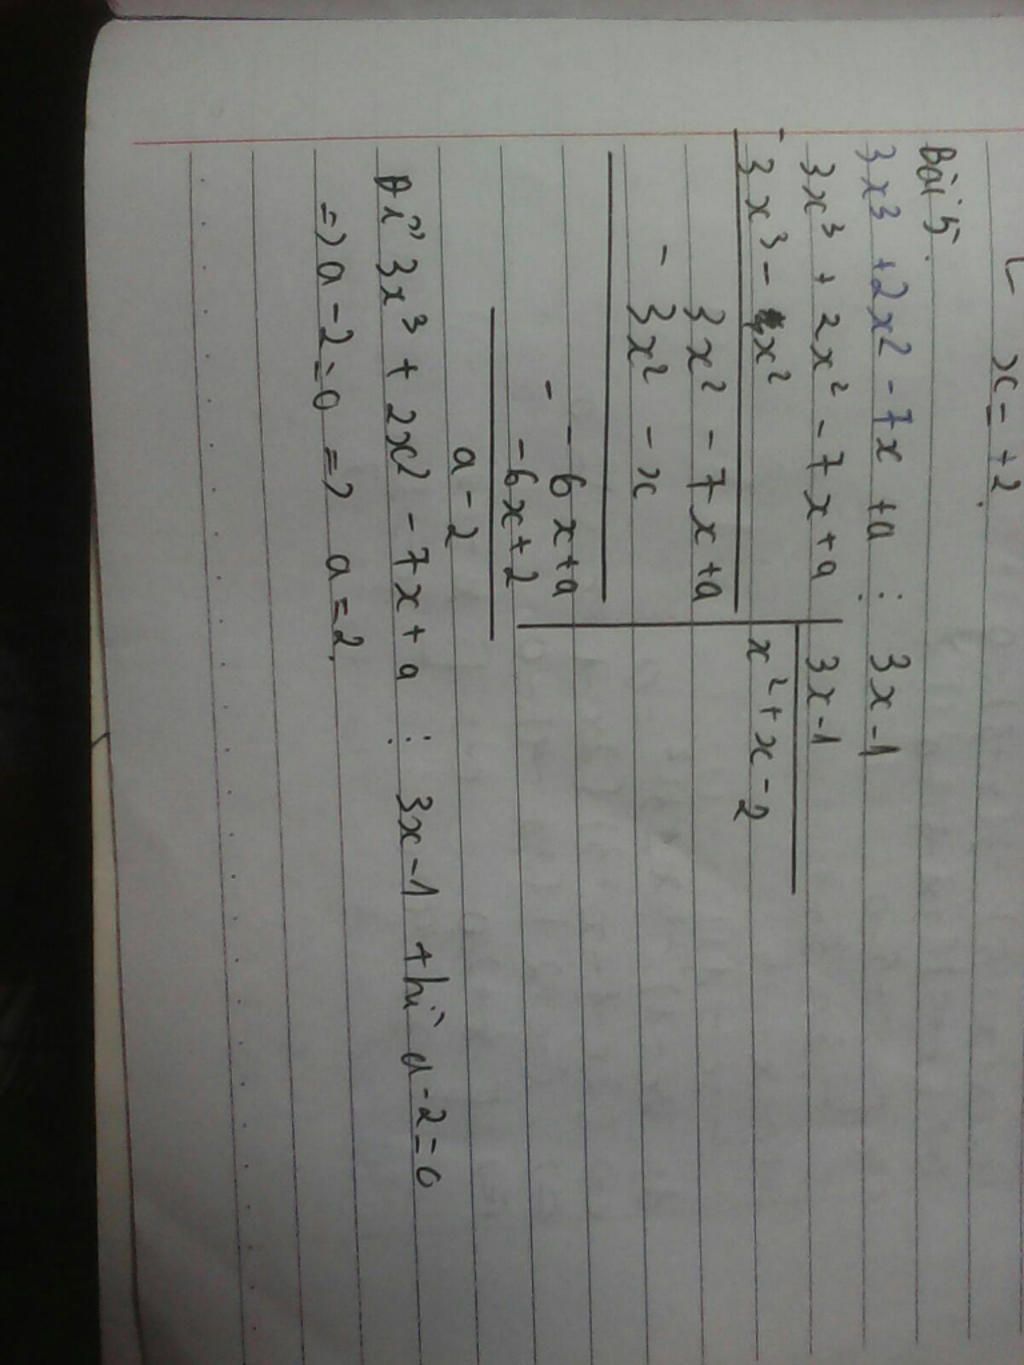 x = +2.
Bài 5.
3x³ + 2x² - 7x + a ⋮ 3x - 1
3x³ + 2x² - 7x + a | 3x - 1
- 3x³ - x² | x² + x - 2
3x² - 7x + a
- 3x² - x
- 6x + a
- - 6x + 2
a - 2
Để 3x³ + 2x² - 7x + a ⋮ 3x - 1 thì a - 2 = 0
=> a - 2 = 0 => a = 2.